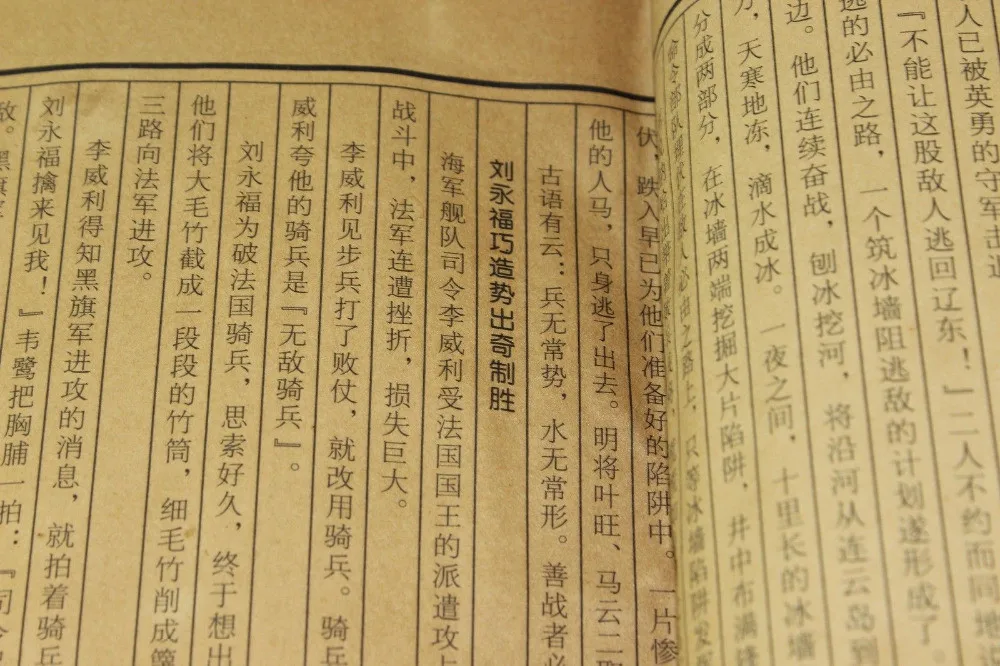 人已被英勇的守军击退
『不能让这股敌人逃回辽东！』二人不约而同地
逃的必由之路，一个筑冰墙阻逃敌的计划遂形成了
边。他们连续奋战，刨冰挖河，将沿河从连云岛到
力，天寒地冻，滴水成冰。一夜之间，十里长的冰墙
分成两部分，在冰墙两端挖掘大片陷阱，井中布满
必由之路上，只等冰墙陷阱发
伏，跌入早已为他们准备好的陷阱中。一片惨
他的人马，只身逃了出去。明将叶旺、马云二
古语有云：兵无常势，水无常形。善战者必
刘永福巧造势出奇制胜
海军舰队司令李威利受法国国王的派遣攻占
战斗中，法军连遭挫折，损失巨大。
李威利见步兵打了败仗，就改用骑兵。骑
威利夸他的骑兵是『无敌骑兵』。
刘永福为破法国骑兵，思索好久，终于想出
他们将大毛竹截成一段段的竹筒，细毛竹削成篾
三路向法军进攻。
李威利得知黑旗军进攻的消息，就拍着骑兵
刘永福擒来见我！』韦鹭把胸脯一拍：『司令
敌。黑旗军